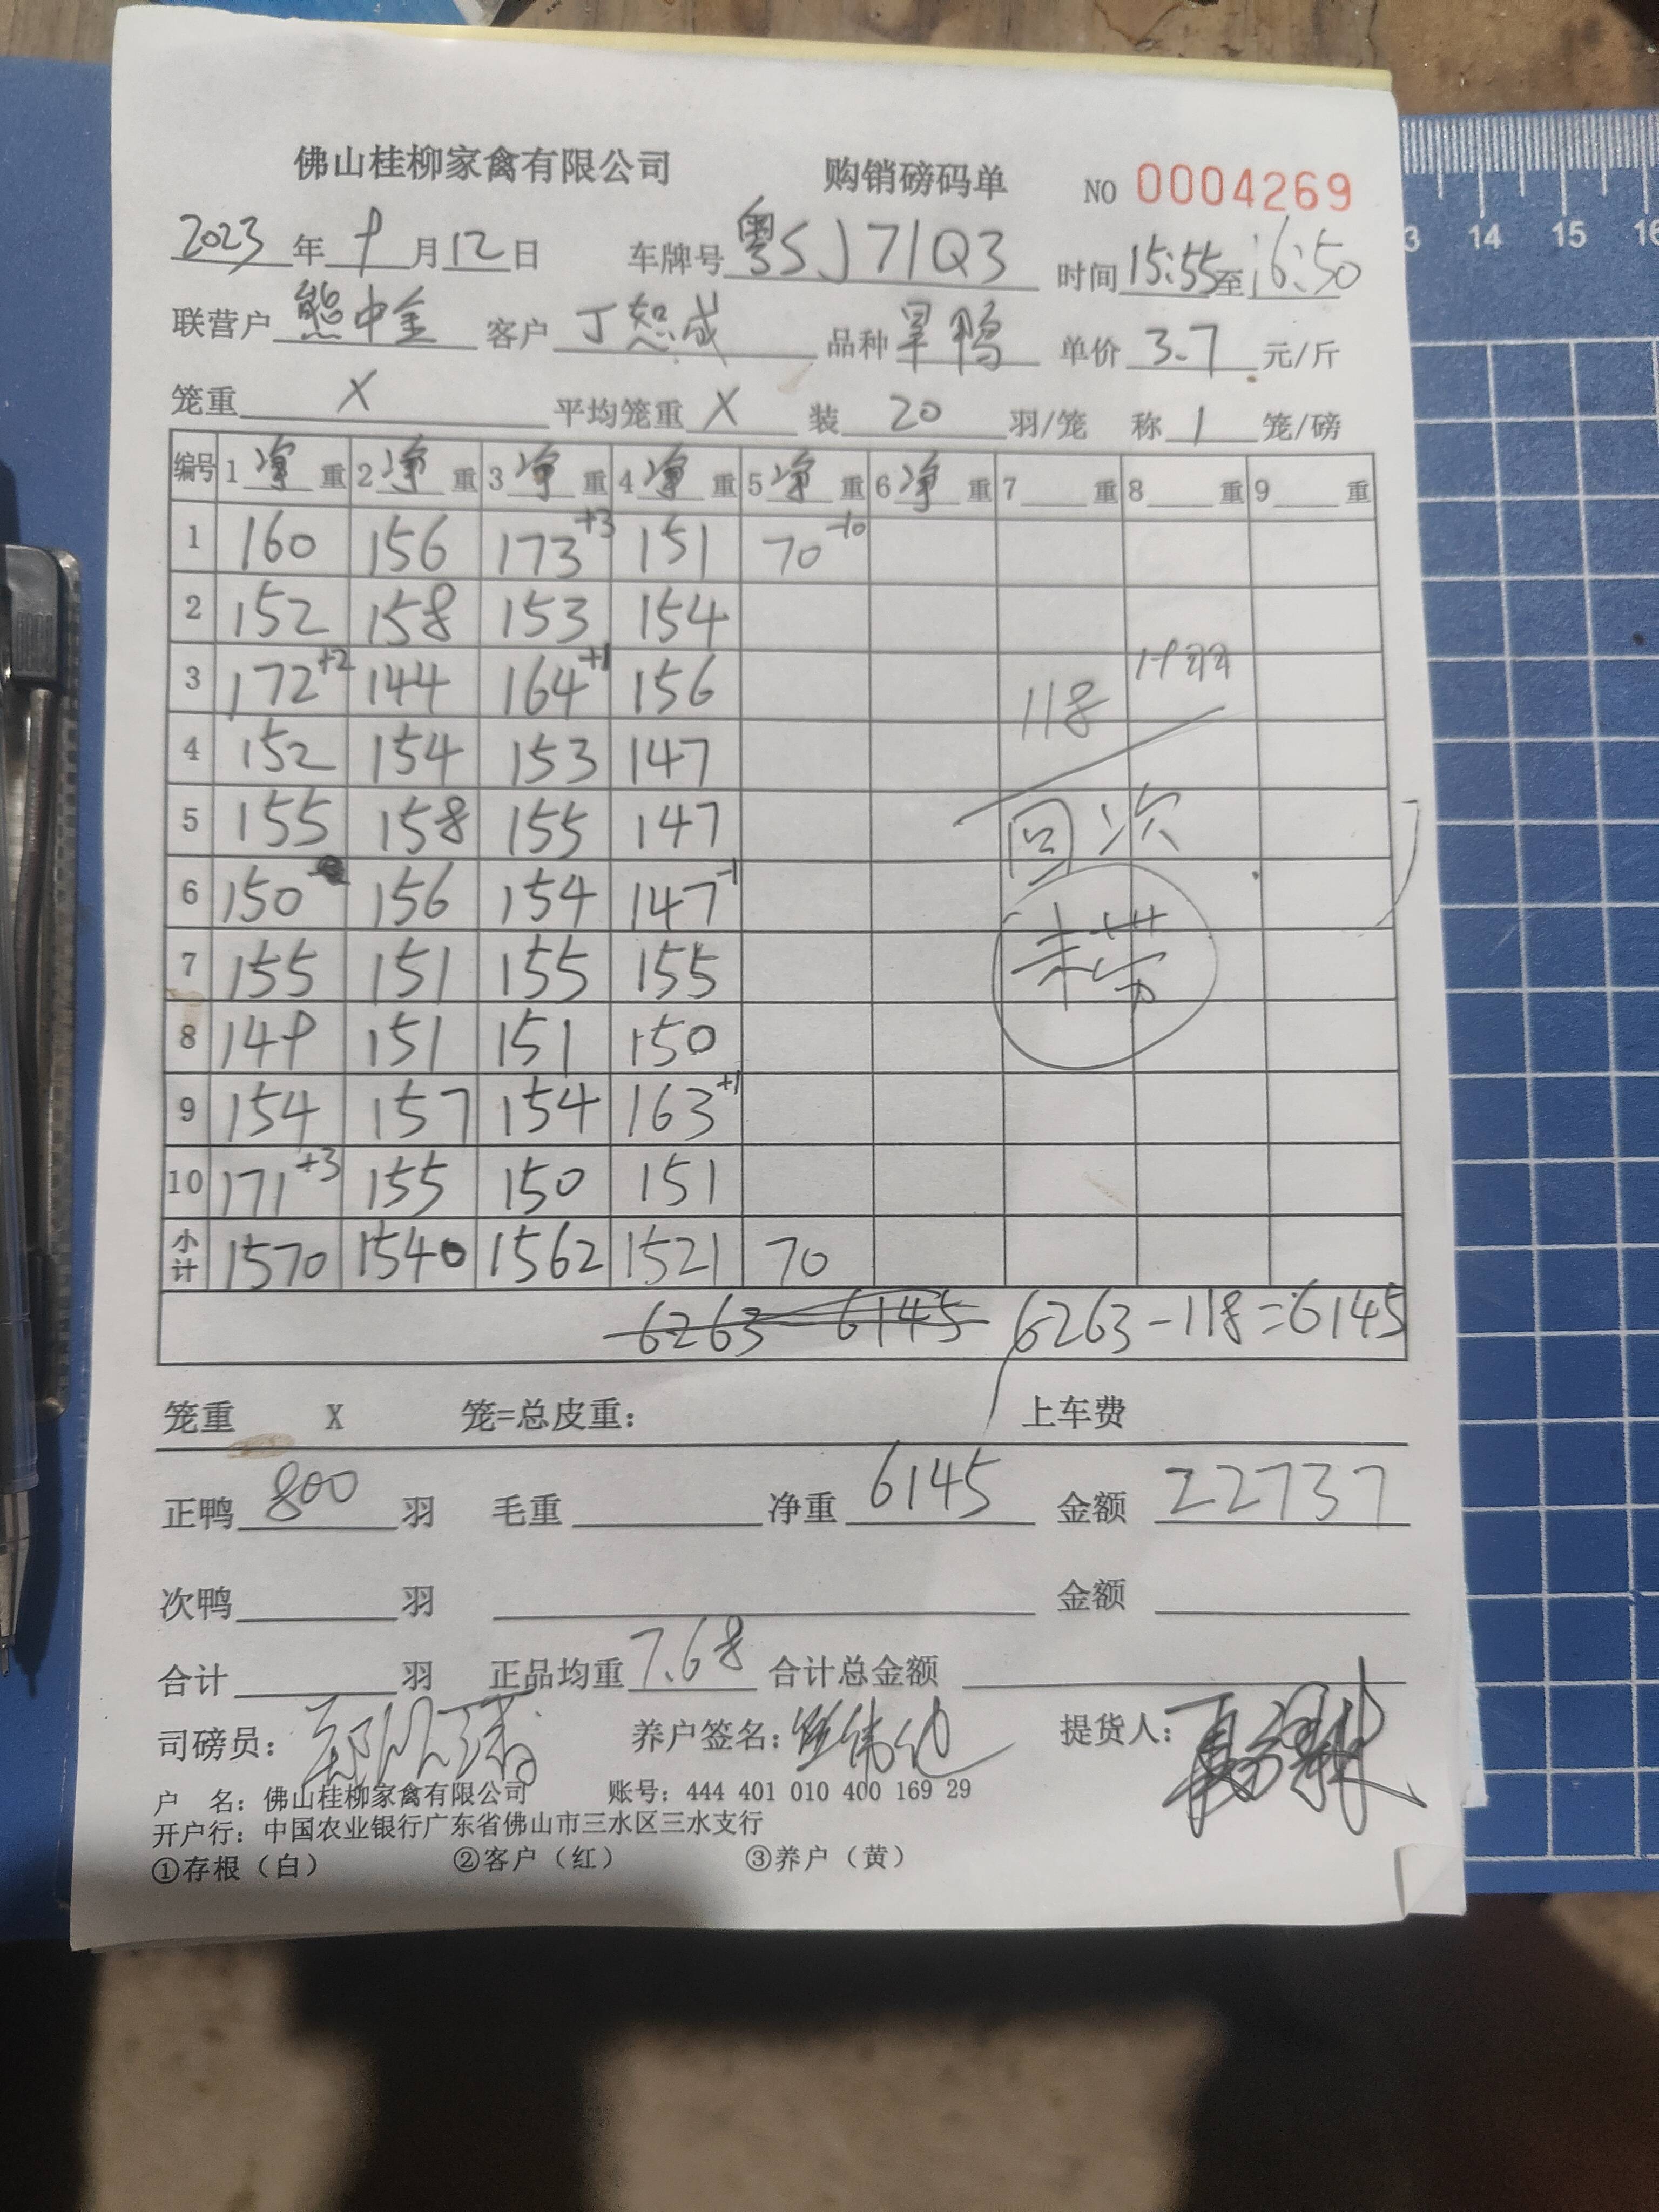 佛山桂柳家禽有限公司 购销磅码单 NO 0004269
2023年9月12日 车牌号 粤SJ71Q3 时间 15:55至16:50
联营户 熊中金 客户 丁恕成 品种 旱鸭 单价 3.7 元/斤
笼重 X 平均笼重 X 装 20 羽/笼 称 1 笼/磅
编号 1净重 2净重 3净重 4净重 5净重 6净重 7重 8重 9重
1 160 156 173+3 151 70-10
2 152 158 153 154
3 172+2 144 164+1 156
4 152 154 153 147
5 155 158 155 147
6 150 156 154 147-1
7 155 151 155 155
8 149 151 151 150
9 154 157 154 163+1
10 171+3 155 150 151
118 19羽
回次
未带
小计 1570 1540 1562 1521 70
6263 6145 6263-118=6145
笼重 X 笼=总皮重: 上车费
正鸭 800 羽 毛重 净重 6145 金额 22737
次鸭 羽 金额
合计 羽 正品均重 7.68 合计总金额
司磅员: 养户签名: 提货人:
户 名: 佛山桂柳家禽有限公司 账号: 444 401 010 400 169 29
开户行: 中国农业银行广东省佛山市三水区三水支行
①存根（白） ②客户（红） ③养户（黄）
13 14 15 16